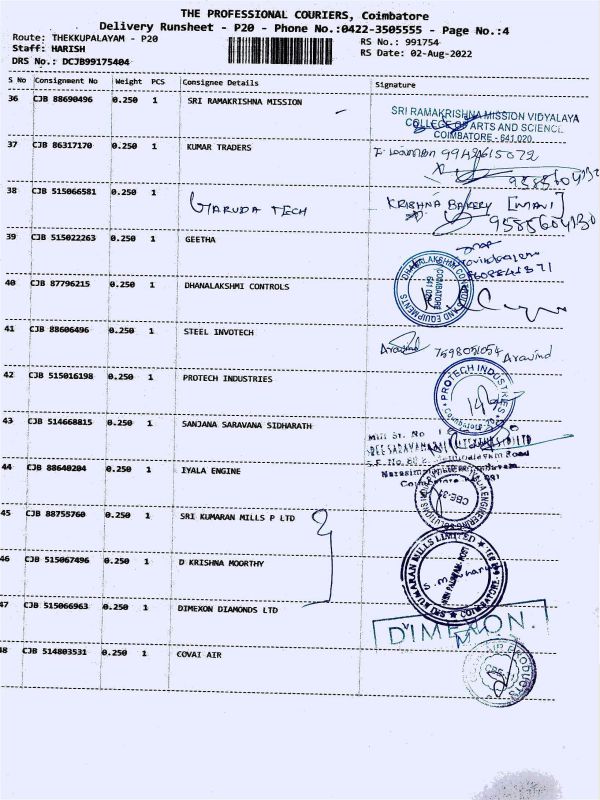 THE PROFESSIONAL COURIERS, Coimbatore
Delivery Runsheet - P20 - Phone No.:0422-3505555 - Page No.:4
Route: THEKKUPALAYAM - P20
RS No.: 991754
Staff: HARISH
RS Date: 02-Aug-2022
DRS No.: DCJB99175404
S No Consignment No Weight PCS Consignee Details Signature
36 CJB 88690496 0.250 1 SRI RAMAKRISHNA MISSION
SRI RAMAKRISHNA MISSION VIDYALAYA
COLLEGE OF ARTS AND SCIENCE
COIMBATORE - 641 020.
37 CJB 86317170 0.250 1 KUMAR TRADERS
9585604130
38 CJB 515066581 0.250 1 GARUDA TECH KRISHNA BAKERY [MANI]
9585604130
39 CJB 515022263 0.250 1 GEETHA
40 CJB 87796215 0.250 1 DHANALAKSHMI CONTROLS
DHANALAKSHMI CONTROLS AND EQUIPMENTS
COIMBATORE
641 020
41 CJB 88606496 0.250 1 STEEL INVOTECH
Aravind 7598051054 Aravind
42 CJB 515016198 0.250 1 PROTECH INDUSTRIES
PROTECH INDUSTRIES
43 CJB 514668815 0.250 1 SANJANA SARAVANA SIDHARATH
Mill St. No
44 CJB 88640204 0.250 1 IYALA ENGINE
45 CJB 88755760 0.250 1 SRI KUMARAN MILLS P LTD
SRI KUMARAN MILLS LIMITED
46 CJB 515067496 0.250 1 D KRISHNA MOORTHY
47 CJB 515066963 0.250 1 DIMEXON DIAMONDS LTD
DIMEXON.
48 CJB 514803531 0.250 1 COVAI AIR